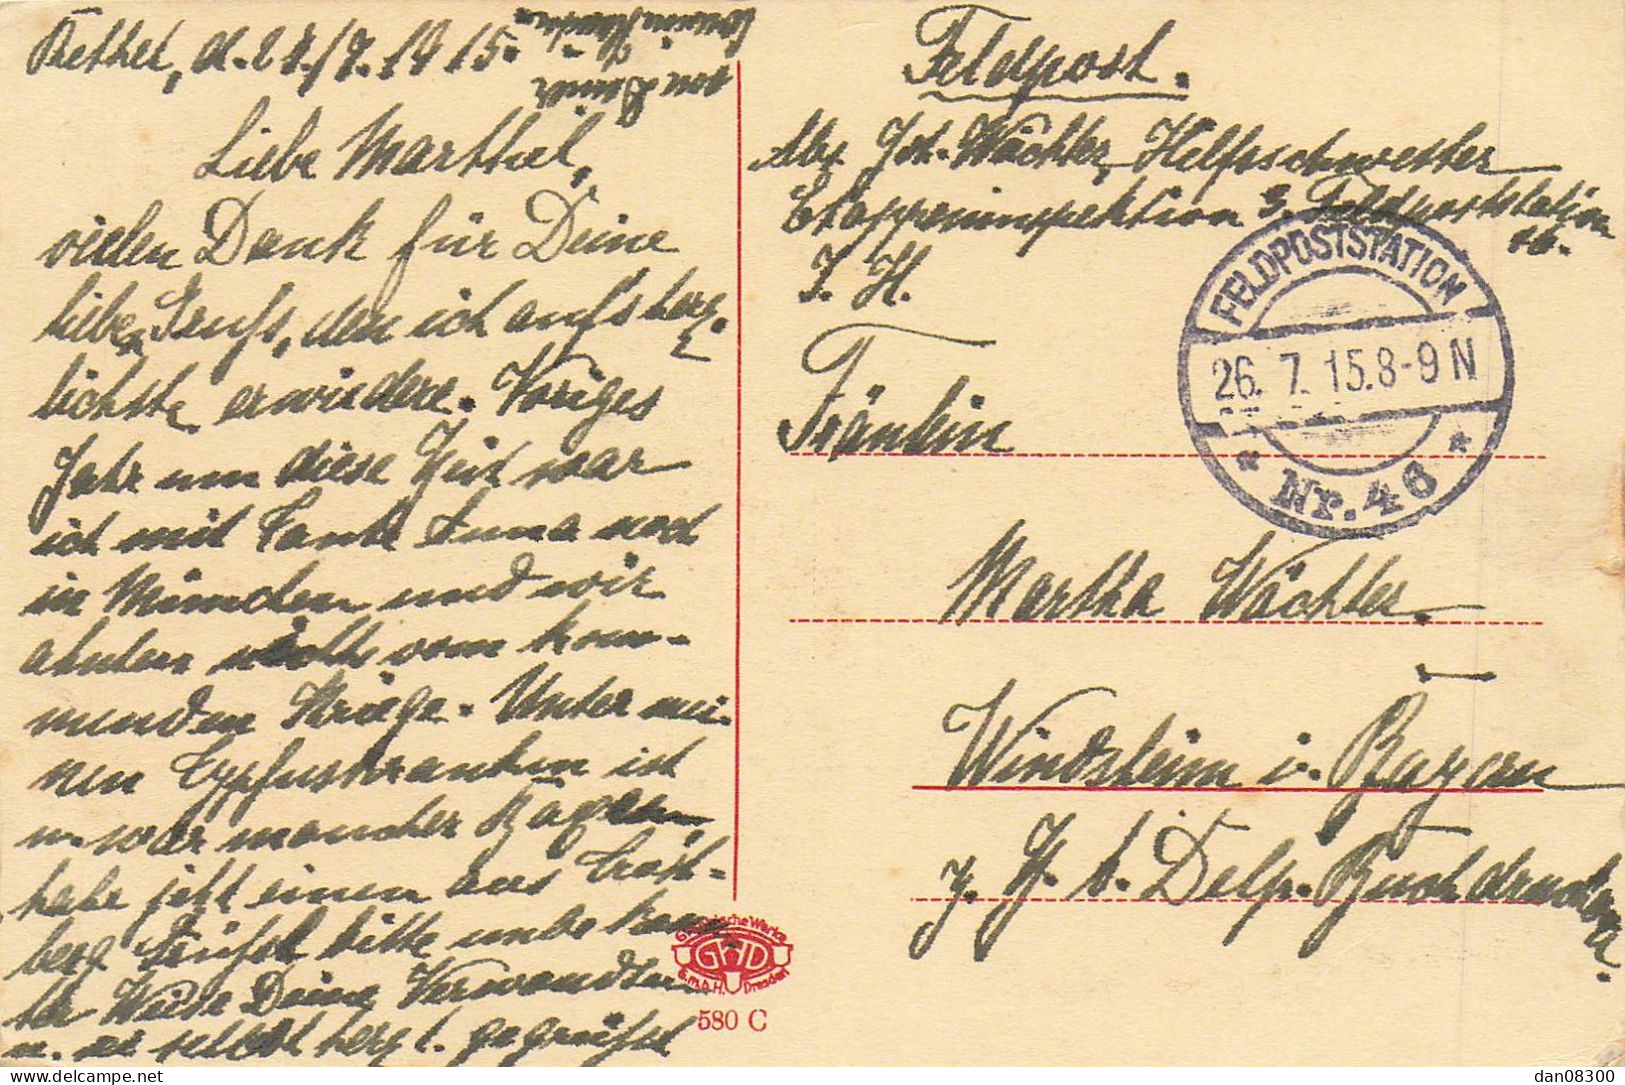 Rethel, d. 24./7. 1915.
von Deiner
Cousine
Liebe Marthel,
vielen Dank für Deine
lieben Gruß, den ich aufs herz-
lichste erwiedere. Voriges
Jahr um diese Zeit war
ich mit Tante Anna noch
in München und wir
ahnten nichts vom kom-
menden Kriege. Unter mei-
nen Typhuskranken ist
u. war mancher Bayer,
habe jetzt einen aus
berg Grüße bitte unbekann-
ter Weise Deine Verwandten
u. sei selbst herzl. gegrüßt
Feldpost.
Abs. Joh. Wächter, Helfsschwester
Etappeninspektion 3. Feldpoststation
46.
J. H.
FELDPOSTSTATION
26. 7. 15. 8-9 N
* Nr. 46 *
Fräulein
Martha Wächter.
Windsheim i. Bayern
z. Z. b. Delp. Buchdruckerei.
Graphische Werke
GWD
G.m.b.H. Dresden
580 C
dan08300